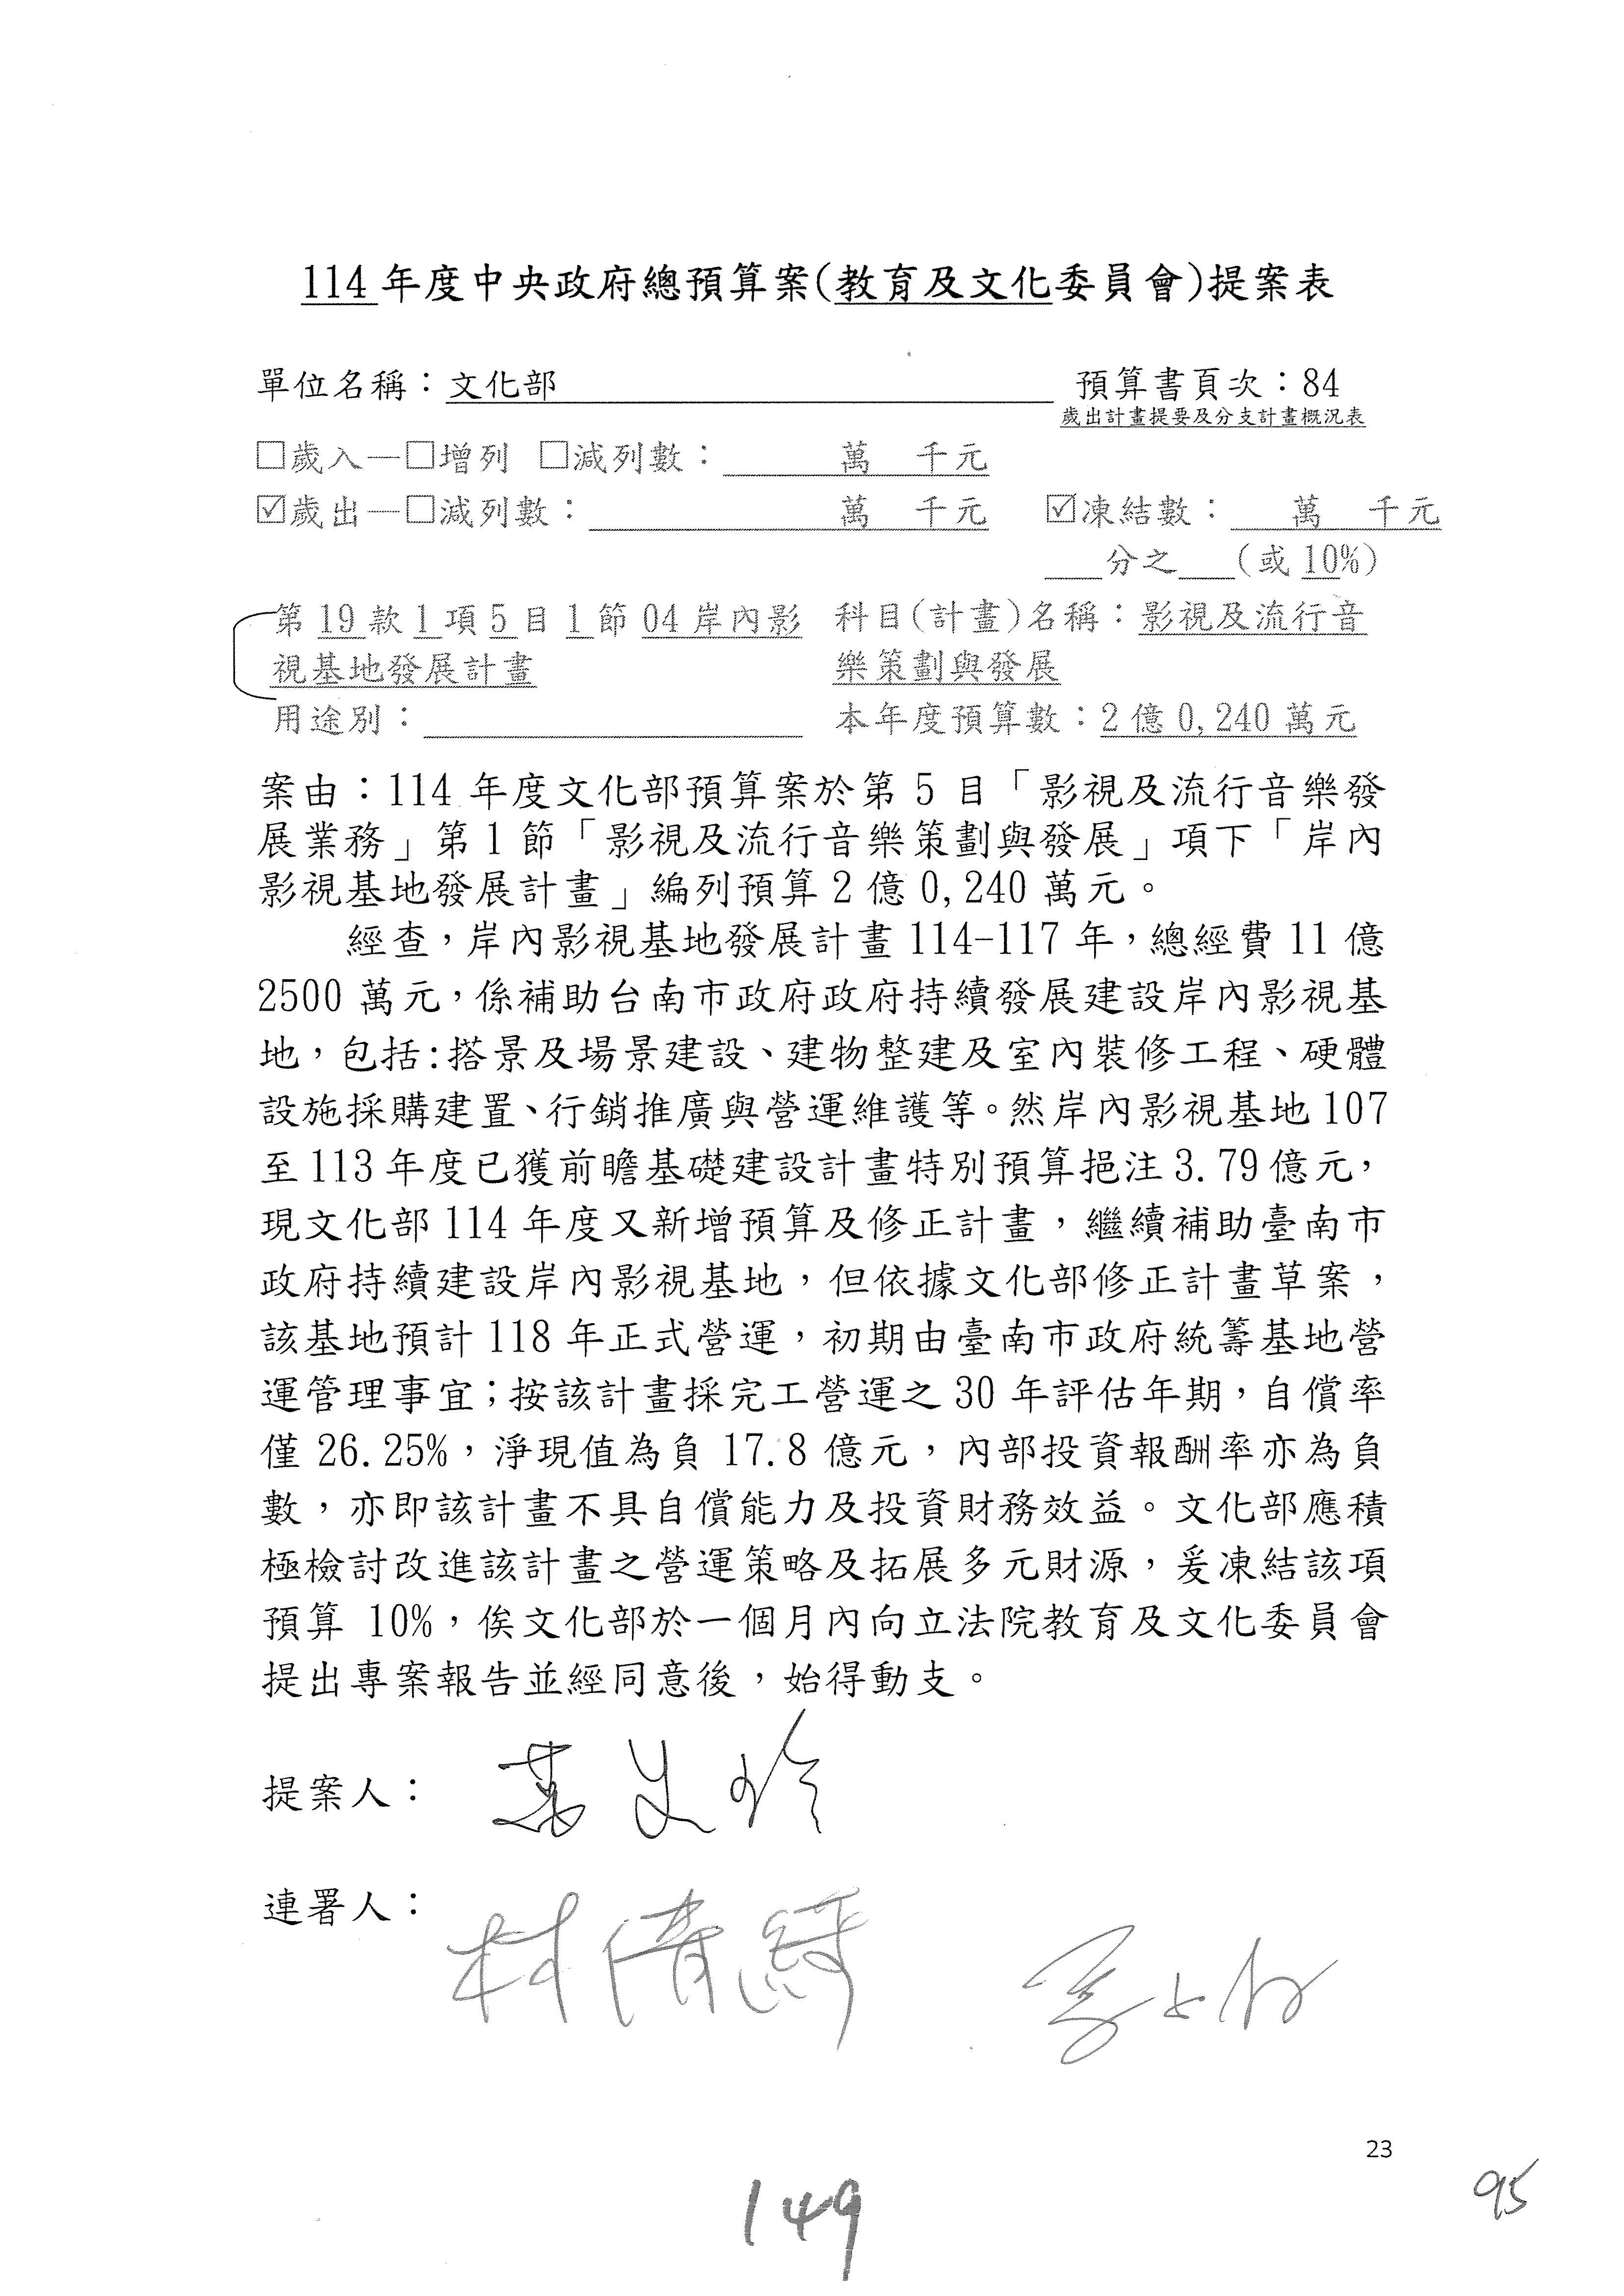 114年度中央政府總預算案(教育及文化委員會)提案表
單位名稱：文化部 預算書頁次：84
歲出計畫提要及分支計畫概況表
□歲入—□增列 □減列數： 萬 千元
☑歲出—□減列數： 萬 千元 ☑凍結數： 萬 千元
分之 (或10%)
第19款1項5目1節04岸內影 科目(計畫)名稱：影視及流行音
視基地發展計畫 樂策劃與發展
用途別： 本年度預算數：2億0,240萬元
案由：114年度文化部預算案於第5目「影視及流行音樂發
展業務」第1節「影視及流行音樂策劃與發展」項下「岸內
影視基地發展計畫」編列預算2億0,240萬元。
經查，岸內影視基地發展計畫114-117年，總經費11億
2500萬元，係補助台南市政府政府持續發展建設岸內影視基
地，包括:搭景及場景建設、建物整建及室內裝修工程、硬體
設施採購建置、行銷推廣與營運維護等。然岸內影視基地107
至113年度已獲前瞻基礎建設計畫特別預算挹注3.79億元，
現文化部114年度又新增預算及修正計畫，繼續補助臺南市
政府持續建設岸內影視基地，但依據文化部修正計畫草案，
該基地預計118年正式營運，初期由臺南市政府統籌基地營
運管理事宜；按該計畫採完工營運之30年評估年期，自償率
僅26.25%，淨現值為負17.8億元，內部投資報酬率亦為負
數，亦即該計畫不具自償能力及投資財務效益。文化部應積
極檢討改進該計畫之營運策略及拓展多元財源，爰凍結該項
預算10%，俟文化部於一個月內向立法院教育及文化委員會
提出專案報告並經同意後，始得動支。
提案人：
連署人：
林倩綺
23
149
95